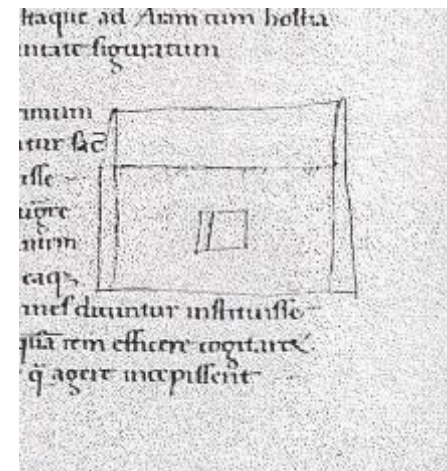 itaque ad Aram cum hostia
figuratum
tur sac̄
isse
nium
eaqꝫ
mes dicuntur instituisse
quā rem efficere cogitarēt
q̄ agere incepissent